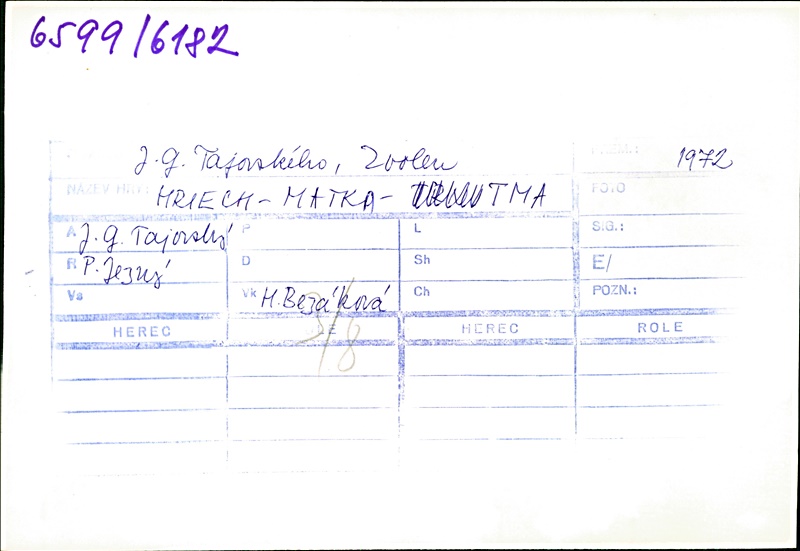 6599/6182
J. G. Tajovského, Zvolen 1972
NÁZEV HRY: HRIECH - MATKA - TMA FOTO
A J. G. Tajovský P L SIG.:
R P. Jezný D Sh E/
Vs Vk H. Bezáková Ch POZN.:
HEREC HEREC ROLE
3/8